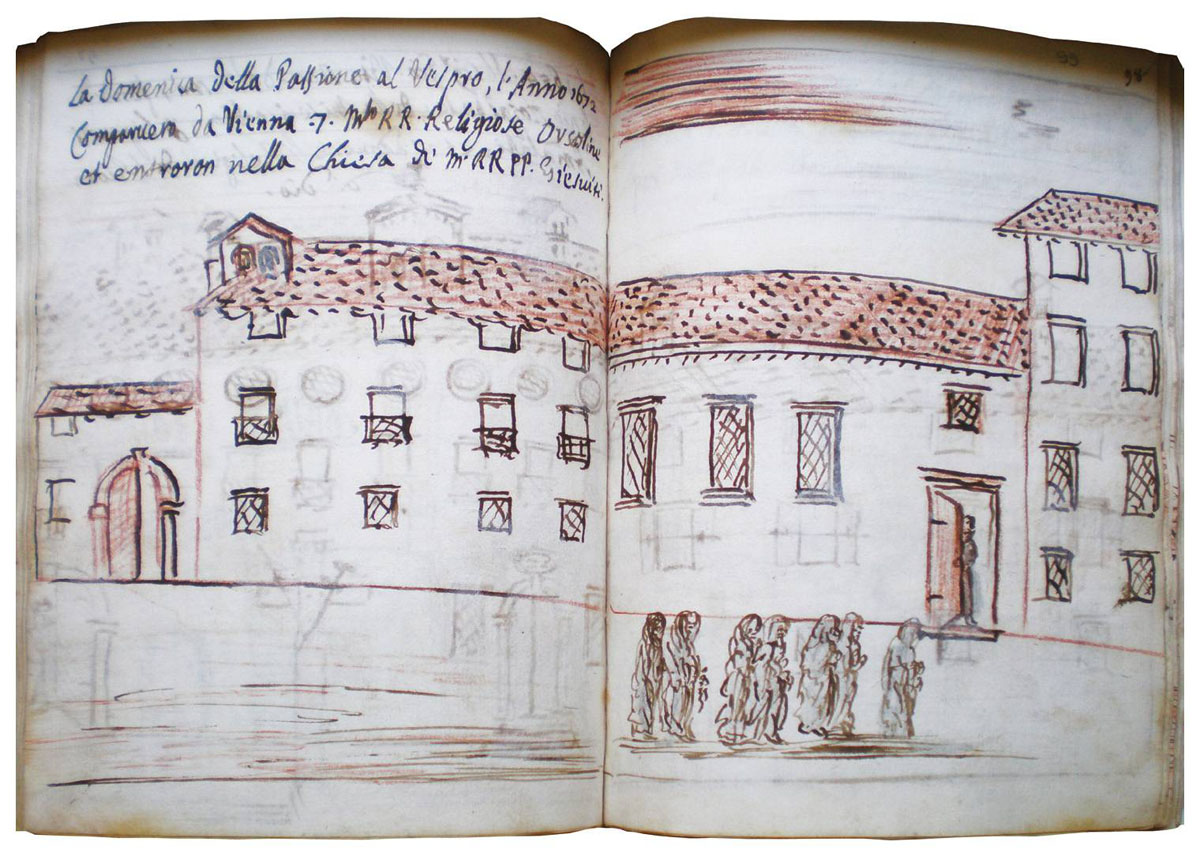 la Domenica della Passione al Vespro, l'Anno 1672
Comparvero da Vienna .7. Mto RR. Religiose Orsoline
et entroron nella Chiesa de' M. RR PP. Giesuiti.
98